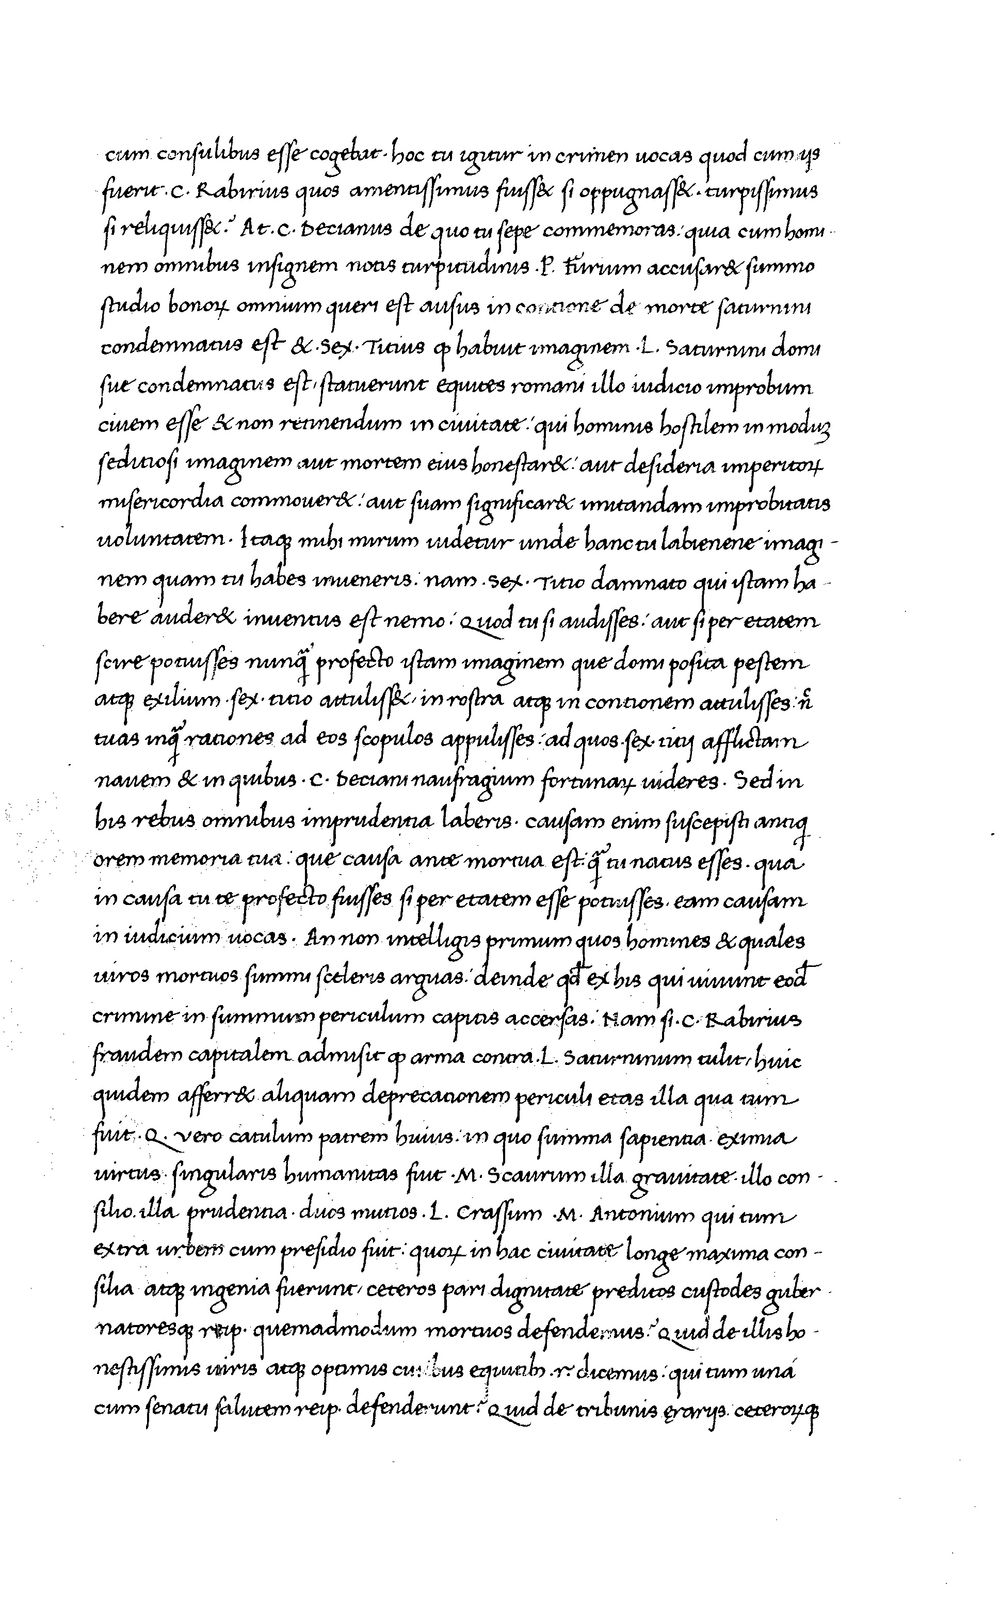 cum consulibus esse cogebat· hoc tu igitur in crimen uocas quod cum ijs
fuerit ·C· Rabirius quos amentissimus fuiss& si oppugnass&· turpissimus
si reliquiss&? At ·C· Decianus de quo tu sepe commemoras: quia cum homi-
nem omnibus insignem notis turpitudinis ·P. Furium accusar& summo
studio bonoꝝ omnium queri est ausus in contione de morte saturnini
condemnatus est & ·Sex· Titius ꝙ habuit imaginem ·L· Saturnini domi
sue condemnatus est, statuerunt equites romani illo iudicio improbum
ciuem esse & non retinendum in ciuitate: qui hominis hostilem in moduꝫ
seditiosi imaginem aut mortem eius honestar&: aut desideria imperitoꝝ
misericordia commouer&: aut suam significar& imitandam improbitatis
uoluntatem· Itaqꝫ mihi mirum uidetur unde hanc tu labienene imagi-
nem quam tu habes inueneris: nam ·Sex· Titio damnato qui istam ha-
bere auder& inuentus est nemo: Quod tu si audisses: aut si per etatem
scire potuisses nunꝗ̃ profecto istam imaginem que domi posita pestem
atqꝫ exilium ·sex· titio attuliss&, in rostra atqꝫ in contionem attulisses: n̄
tuas inꝗ̃ rationes ad eos scopulos appulisses: ad quos ·sex· titij afflictam
nauem & in quibus ·C· Deciani naufragium fortunaꝝ uideres· Sed in
his rebus omnibus imprudentia laberis· causam enim suscepisti antiq
orem memoria tua: que causa ante mortua est: ꝗ̃ tu natus esses· qua
in causa tu te profecto fuisses si per etatem esse potuisses· eam causam
in iudicium uocas· An non intelligis primum quos homines & quales
uiros mortuos summi sceleris arguas: deinde qđ ex his qui uiuunt eod̄
crimine in summum periculum capitis accersas: Nam si ·C· Rabirius
fraudem capitalem admisit ꝙ arma contra ·L· Saturninum tulit, huic
quidem afferr& aliquam deprecationem periculi etas illa qua tum
fuit ·Q· vero catulum patrem huius: in quo summa sapientia· eximia
uirtus· singularis humanitas fuit ·M· Scaurum illa grauitate· illo con-
silio· illa prudentia· duos mutios ·L· Crassum ·M· Antonium qui tum
extra urbem cum presidio fuit: quoꝝ in hac ciuitate longe maxima con-
silia atqꝫ ingenia fuerunt, ceteros pari dignitate preditos custodes guber-
natoresqꝫ reip· quemadmodum mortuos defendemus? Quid de illis ho-
nestissimis uiris atqꝫ optimis ciuibus equitibꝫ ·r· dicemus: qui tum uná
cum senatu salutem reip· defenderunt? Quid de tribunis ęrarijs ceteroꝝqꝫ